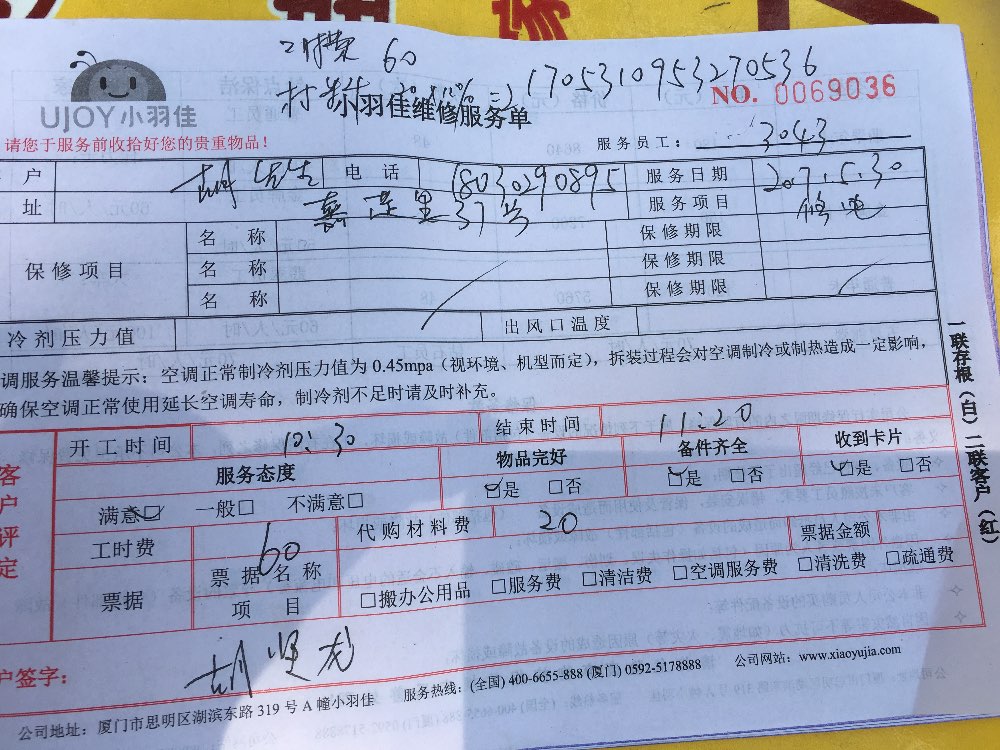 工时费 60
170531095327​0536
UJOY小羽佳
小羽佳维修服务单
NO. 0069036
请您于服务前收拾好您的贵重物品！
服务员工： 3043
户 胡先生 电话 18030290895 服务日期 2017.5.30
址 嘉莲里37号 服务项目 修电
保修项目
名称 保修期限
名称 保修期限
名称 保修期限
冷剂压力值 出风口温度
调服务温馨提示：空调正常制冷剂压力值为 0.45mpa（视环境、机型而定），拆装过程会对空调制冷或制热造成一定影响，
确保空调正常使用延长空调寿命，制冷剂不足时请及时补充。
一联存根（白）二联客户（红）
客户评定
开工时间 10:30 结束时间 11:20
服务态度 物品完好 备件齐全 收到卡片
满意☑ 一般□ 不满意□ ☑是 □否 ☑是 □否 ☑是 □否
工时费 60 代购材料费 20 票据金额
票据 票据名称
项目 □搬办公用品 □服务费 □清洁费 □空调服务费 □清洗费 □疏通费
户签字：
公司地址：厦门市思明区湖滨东路 319 号 A 幢小羽佳 服务热线：(全国) 400-6655-888 (厦门) 0592-5178888 公司网站：www.xiaoyujia.com